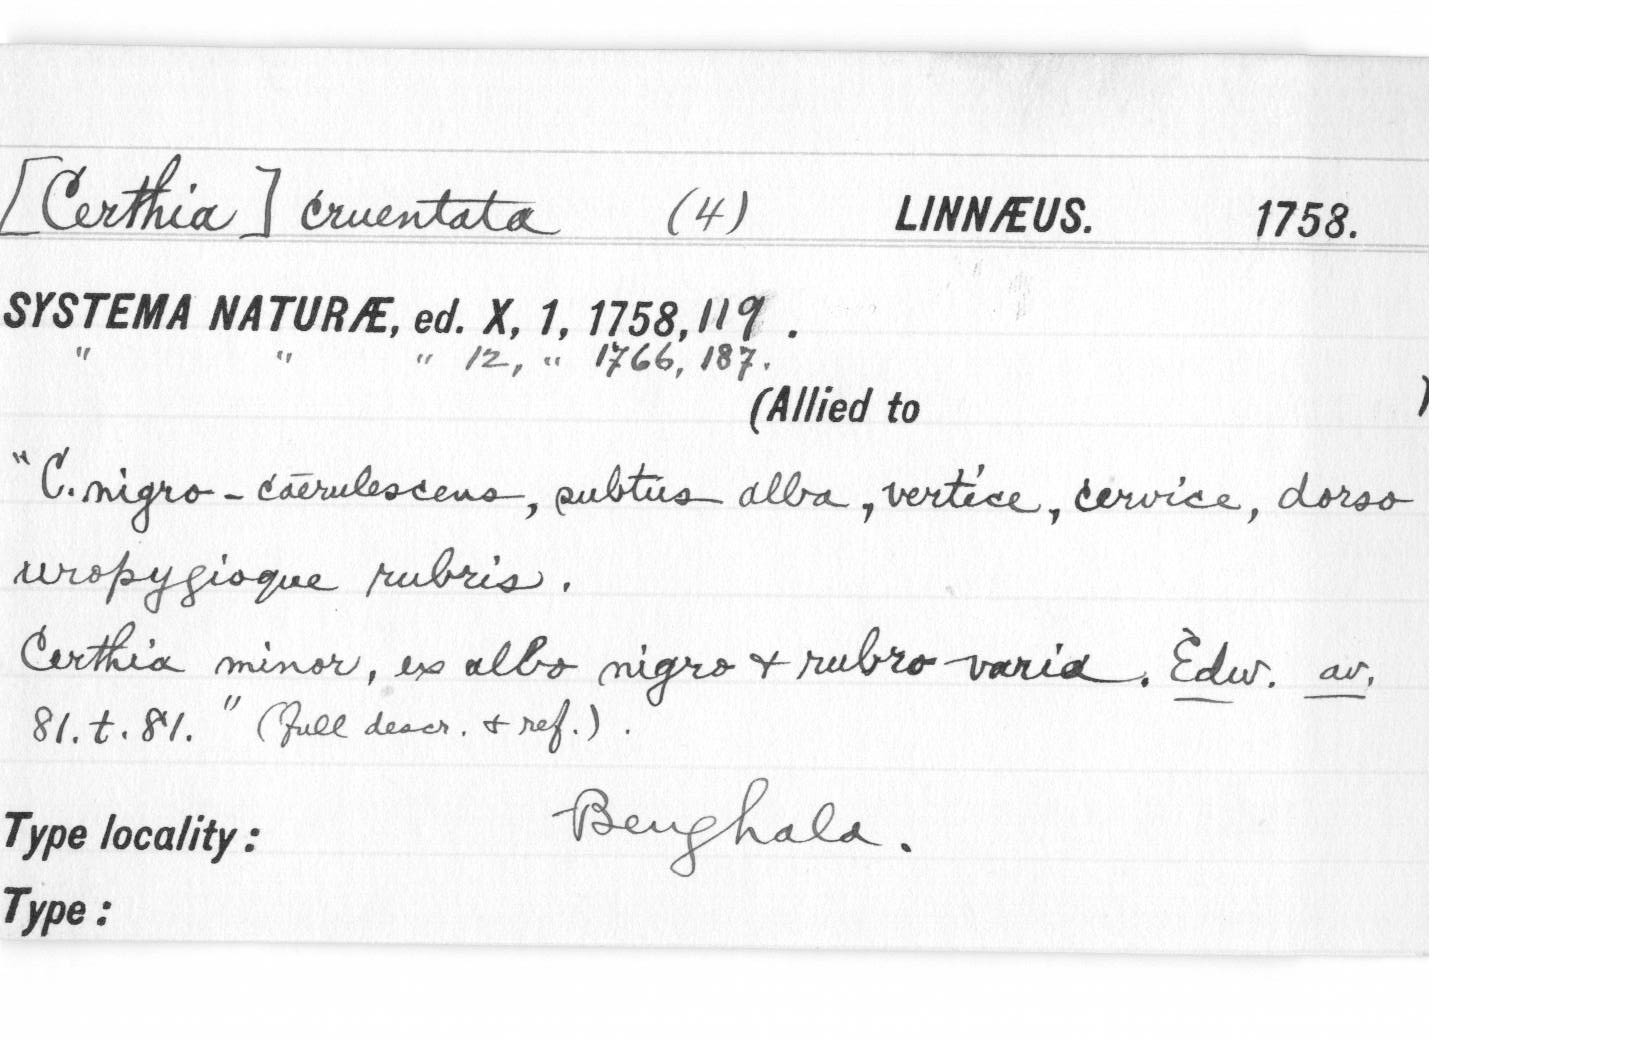 [Certhia] cruentata (4) LINNÆUS. 1758.
SYSTEMA NATURÆ, ed. X, 1, 1758, 119.
" " " 12, " 1766, 187.
(Allied to )
"C. nigro-caerulescens, subtus alba, vertice, cervice, dorso
uropygioque rubris.
Certhia minor, ex albo nigro & rubro varia. Edw. av.
81. t. 81." (full descr. & ref.).
Type locality: Benghala.
Type: